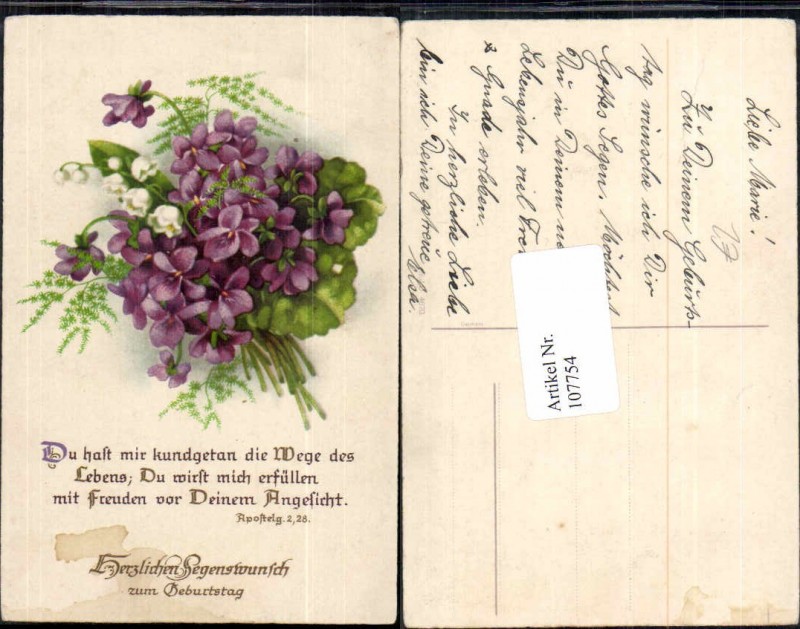 Du hast mir kundgetan die Wege des
Lebens; Du wirst mich erfüllen
mit Freuden vor Deinem Angesicht.
Apostelg. 2,28.
Herzlichen Segenswunsch
zum Geburtstag
Liebe Marie!
Zu Deinem Geburts-
tag wünsche ich Dir
Gottes Segen. Möchtest
Du in Deinem
Lebensjahr viel
& Gnade erleben.
In herzlicher Liebe
bin ich Deine getreue Elsa.
Artikel Nr.
107754